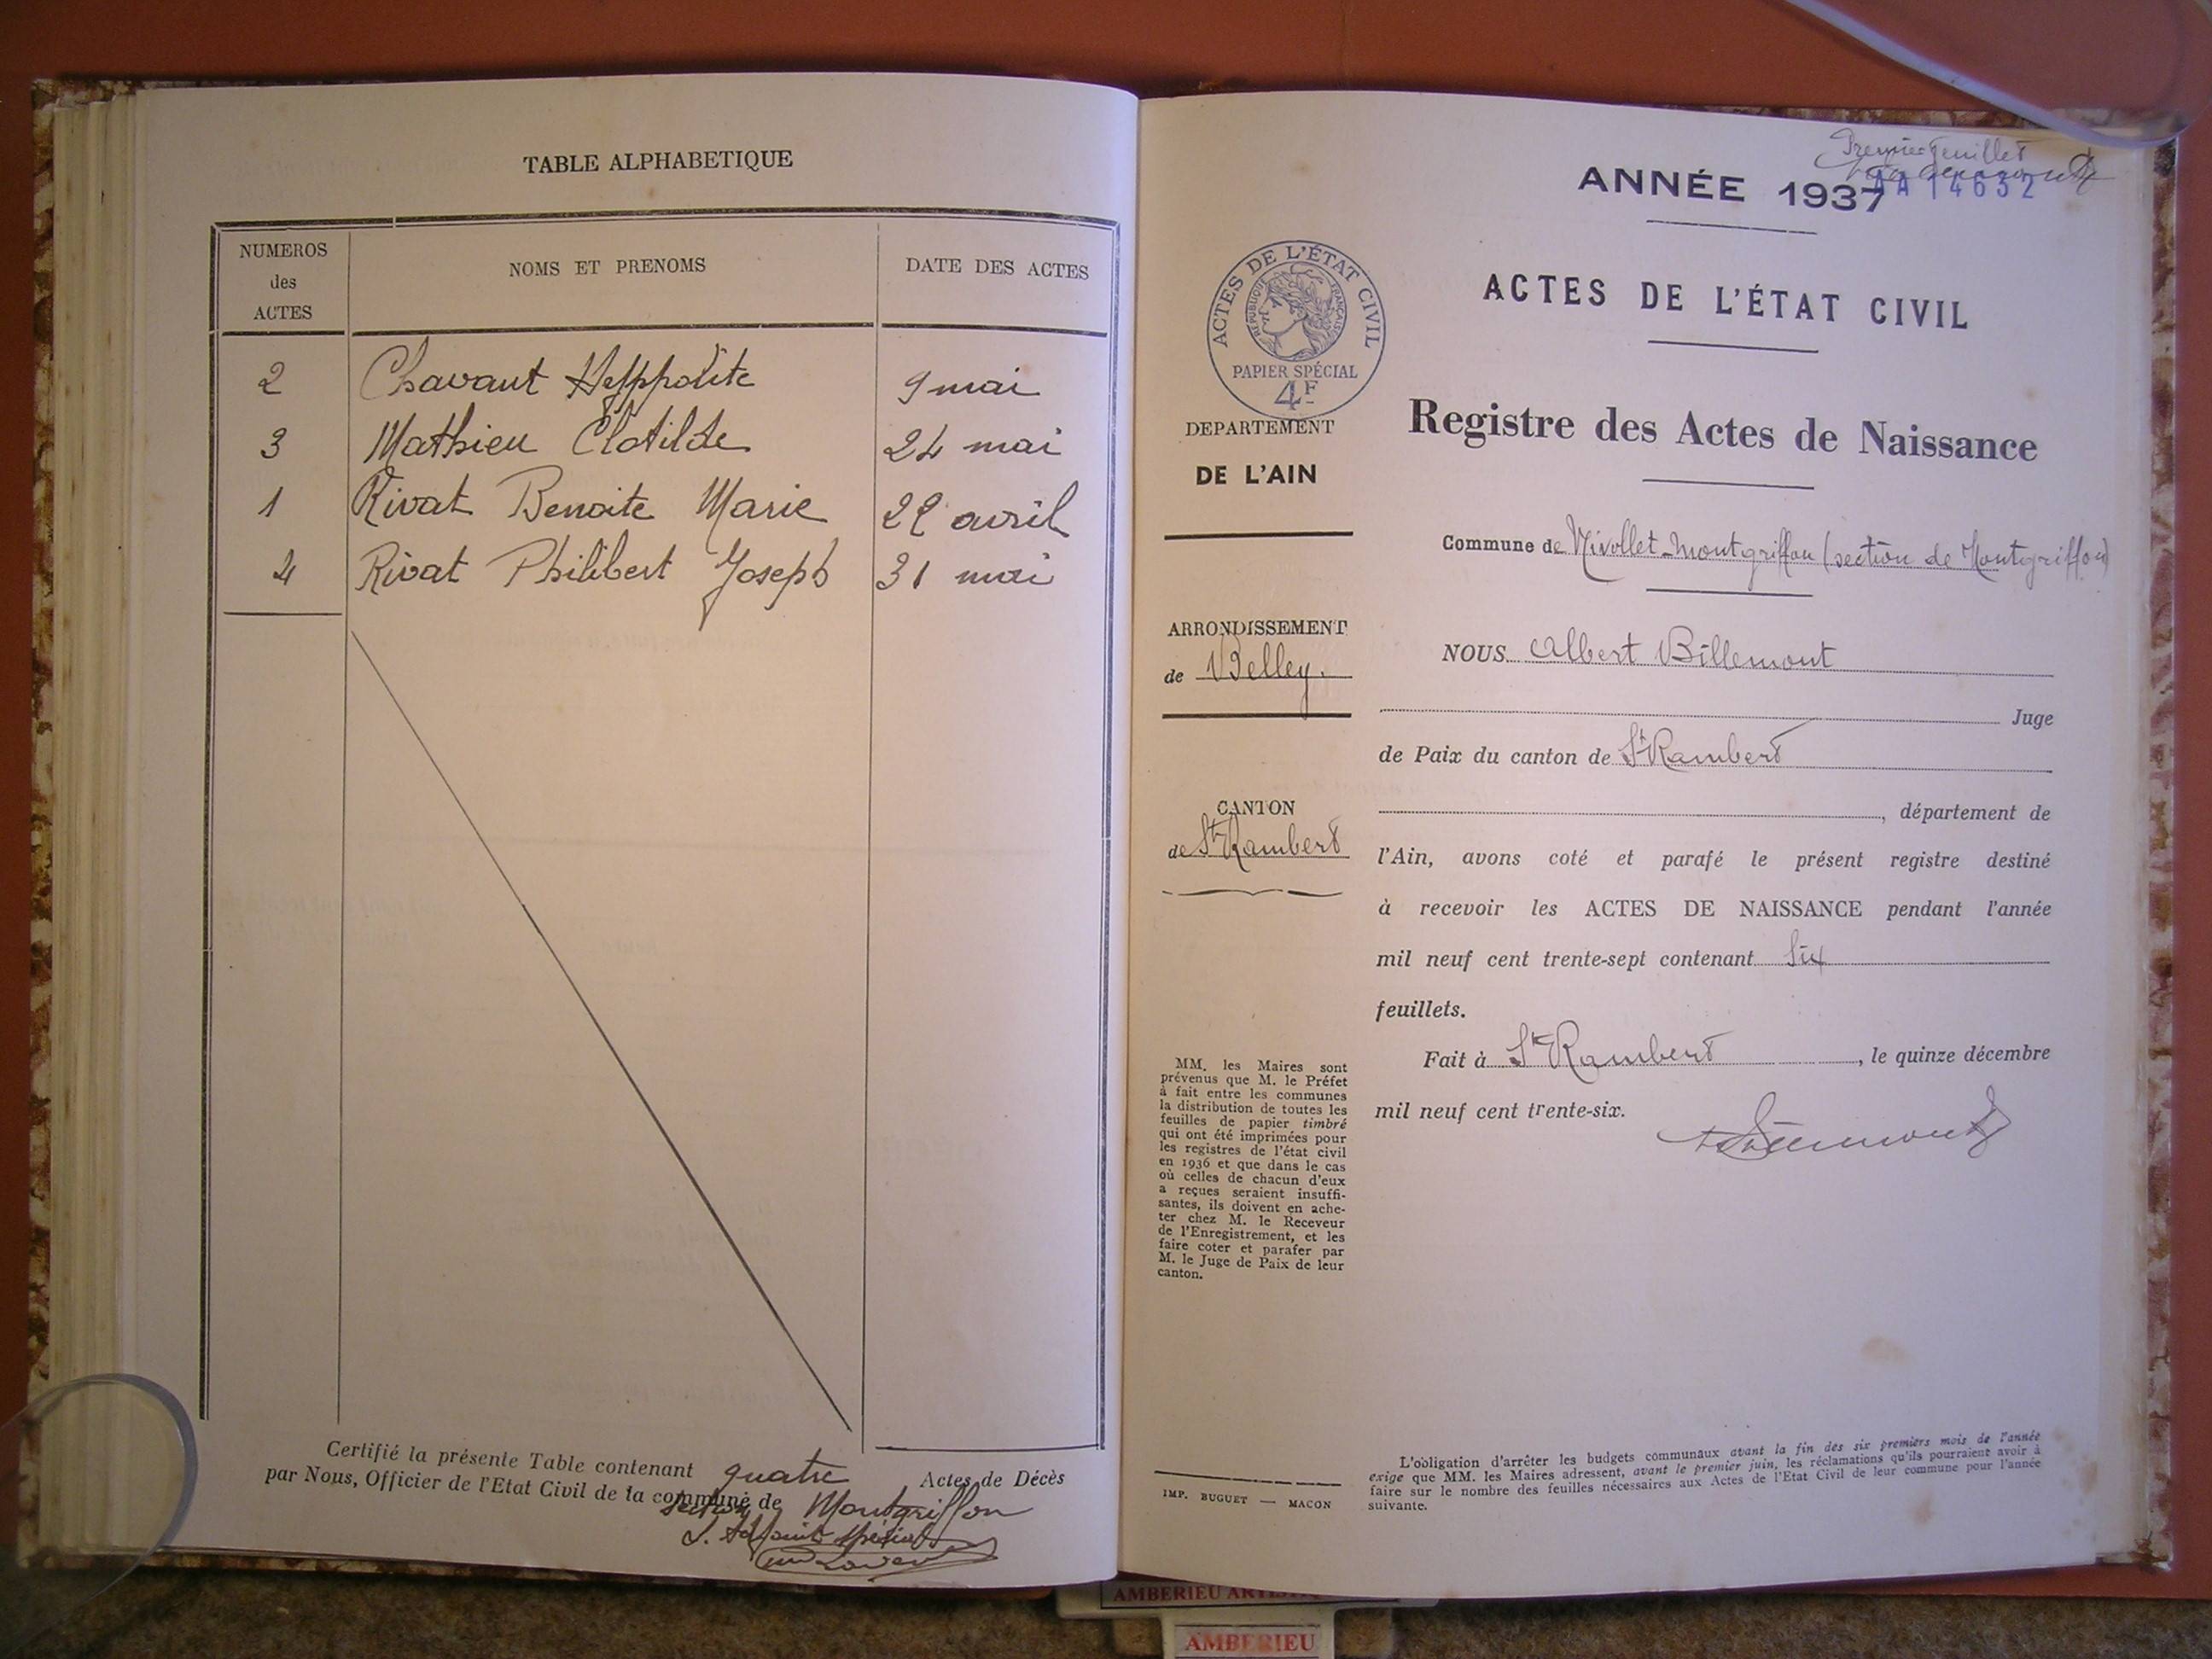 TABLE ALPHABETIQUE
NUMEROS des ACTES
NOMS ET PRENOMS
DATE DES ACTES
2 Chavant Hyppolite 9 mai
3 Mathieu Clotilde 24 mai
1 Rivat Benoite Marie 22 avril
4 Rivat Philibert Joseph 31 mai
Certifié la présente Table contenant quatre Actes de Décès
par Nous, Officier de l'Etat Civil de la commune de Montgriffon
section
L. Adjoint spécial
Premier feuillet
AA 14632
ANNÉE 1937
ACTES DE L'ÉTAT CIVIL
RÉPUBLIQUE FRANÇAISE
PAPIER SPÉCIAL
4F
DEPARTEMENT
DE L'AIN
ARRONDISSEMENT
de Belley.
CANTON
de St Rambert
MM. les Maires sont
prévenus que M. le Préfet
à fait entre les communes
la distribution de toutes les
feuilles de papier timbré
qui ont été imprimées pour
les registres de l'état civil
en 1936 et que dans le cas
où celles de chacun d'eux
a reçues seraient insuffi-
santes, ils doivent en ache-
ter chez M. le Receveur
de l'Enregistrement, et les
faire coter et parafer par
M. le Juge de Paix de leur
canton.
IMP. BUGUET — MACON
ACTES DE L'ÉTAT CIVIL
Registre des Actes de Naissance
Commune de Nivollet-Montgriffon (section de Montgriffon)
NOUS Albert Billemont
Juge
de Paix du canton de St Rambert
, département de
l'Ain, avons coté et parafé le présent registre destiné
à recevoir les ACTES DE NAISSANCE pendant l'année
mil neuf cent trente-sept contenant Six
feuillets.
Fait à St Rambert, le quinze décembre
mil neuf cent trente-six.
L'obligation d'arrêter les budgets communaux avant la fin des six premiers mois de l'année
exige que MM. les Maires adressent, avant le premier juin, les réclamations qu'ils pourraient avoir à
faire sur le nombre des feuilles nécessaires aux Actes de l'Etat Civil de leur commune pour l'année
suivante.
AMBERIEU
AMBERIEU